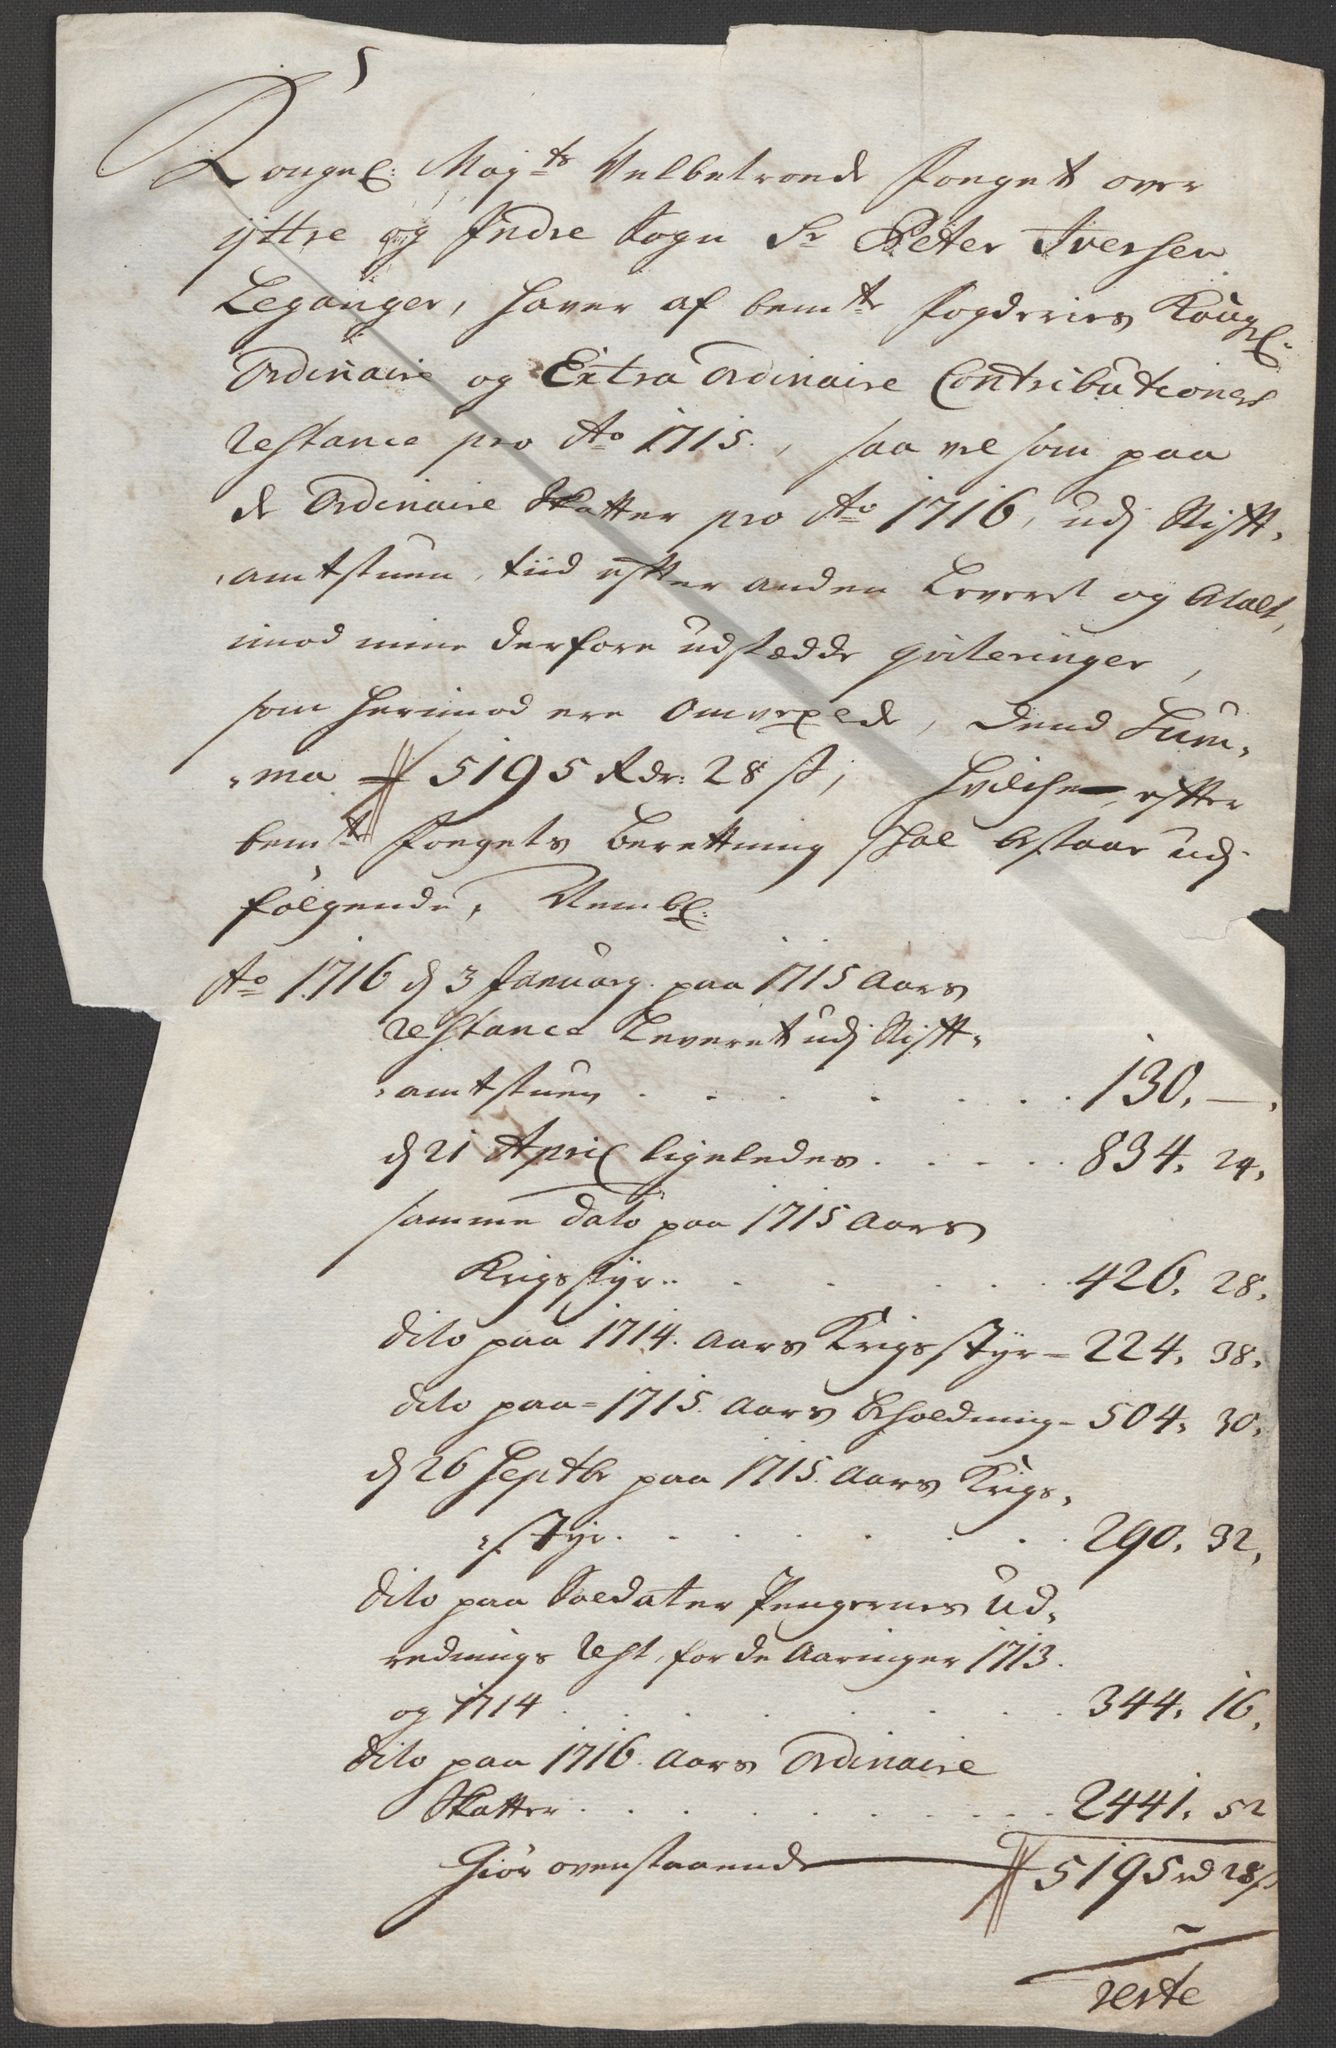 5
Kongel: Mayts Velbetroede Fouget over
ÿttre og Indre Sogn Sr Peter Iversen
Leganger, haver af bemte Fogderies Kongl:
Ordinaire og Extra Ordinaire Contributioners
restance pro Ao 1715., saa vel som paa
de Ordinaire Skatter pro Ao 1716, udj Stift-
amtstuen, tiid efter anden Leveret og Betalt,
imod mine derfore udstædde qviteringer,
som herimod ere omvexlede, dend Sum-
ma # 5195 Rdr: 28 s, hvilche, efter
bemte Fougets berettning skal bestaae udj
følgende, Nembl:
Ao 1716 d 3 Januarj. paa 1715 Aars
restance Leveret udj Stift-
amtstuen . . . . . . 130. —.
d 21 April ligeledes . . . . . 834. 24.
samme dato paa 1715 Aars
Krigsstyr . . . . . . 426. 28.
dito paa 1714. Aars Krigsstyr - 224. 38.
dito paa - 1715. Aars beholdning - 504. 30.
d 26 Septbr paa 1715. Aars Krigs-
styr . . . . . . . 290. 32.
dito paa Soldater Pengernes Ud-
rednings Rest, for de Aaringer 1713.
og 1714 . . . . . . . 344. 16.
dito paa 1716. Aars Ordinaire
Skatter . . . . . . . . 2441. 52
Giør ovenstaaende # 5195 rd 28 s
verte